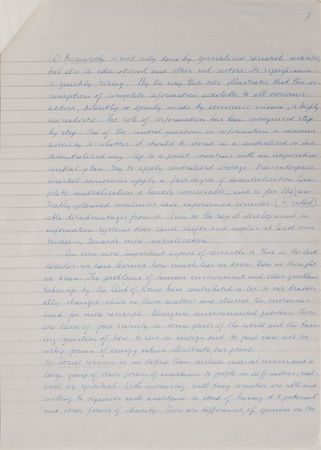 7
(5) Research is not only done by specialised research institutes
but also in educational and other sub-sectors. Its significance
is quickly rising. By the way this rise illustrates that the as-
sumption of complete information available to all economic
actors, silently or openly made by economic science, is highly
unrealistic. The role of information has been recognised step
by step. One of the central questions on information in economic
activity is whether it should be stored in a centralised or in a
decentralised way. Up to a point countries with an imperative
central plan try to apply centralised storage. Free-enterprise
market economies apply a fair degree of decentralisation. Com-
plete centralisation is hardly conceivable; and so far the cen-
trally planned economies have experienced consider- (so-called)
able disadvantages from it. Even so the rapid development in
information systems does cause shifts and implies at least some
tendency towards more centralisation.
An even more important aspect of research is that in the last
decades we have learned how much less we know than we thought
we knew. The problems of human environment and other problems
taken up by the Club of Rome have contributed a lot to our
changed views on these matters and stressed the enormous
need for more research. Alongside environmental questions there
are those of food scarcity in some parts of the world and the
question of how to save on energy and to find new not
forms of energy which illustrate our point.
(6) Social services as we define them include medical services and a
large group of other forms of assistance to people in difficulties, mat-
erial or spiritual. With increasing well-being countries are able and
willing to organise such assistance instead of leaving it to paternal
and other forms of charity. There are differences of opinion on the